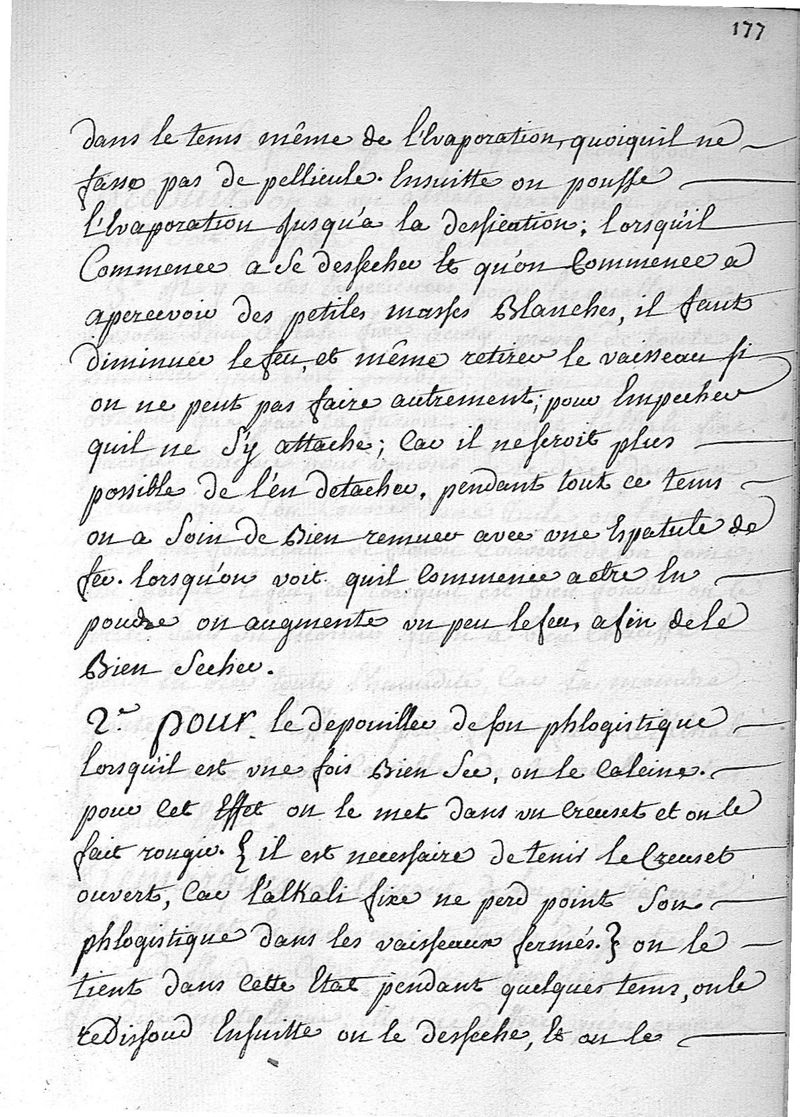 177
dans le tems même de l'Evaporation, quoiquil ne
fasse pas de pellicule. Ensuitte on pousse
l'Evaporation jusqu'a la dessication; lorsqu'il
Commence a se dessecher Et qu'on Commence a
apercevoir des petites masses Blanches, il faut
diminuer le feu, et même retirer le vaisseau si
on ne peut pas faire autrement; pour Empecher
quil ne s'y attache; Car il ne seroit plus
possible de l'en detacher. pendant tout ce tems
on a soin de Bien remuer avec une Espatule de
fer. lorsqu'on voit quil Commence a etre En
poudre on augmente un peu le feu, afin de le
Bien Secher.
2.° pour le depouiller de son phlogistique
lorsqu'il est une fois Bien Sec, on le Calcine.
pour cet Effet on le met dans un Creuset et on le
fait rougir. { il est necessaire de tenir le Creuset
ouvert, Car l'alkali fixe ne perd point Son
phlogistique dans les vaisseaux fermés. } on le
tient dans cette Etat pendant quelques tems, on le
redissoud Ensuitte on le desseche, Et on le